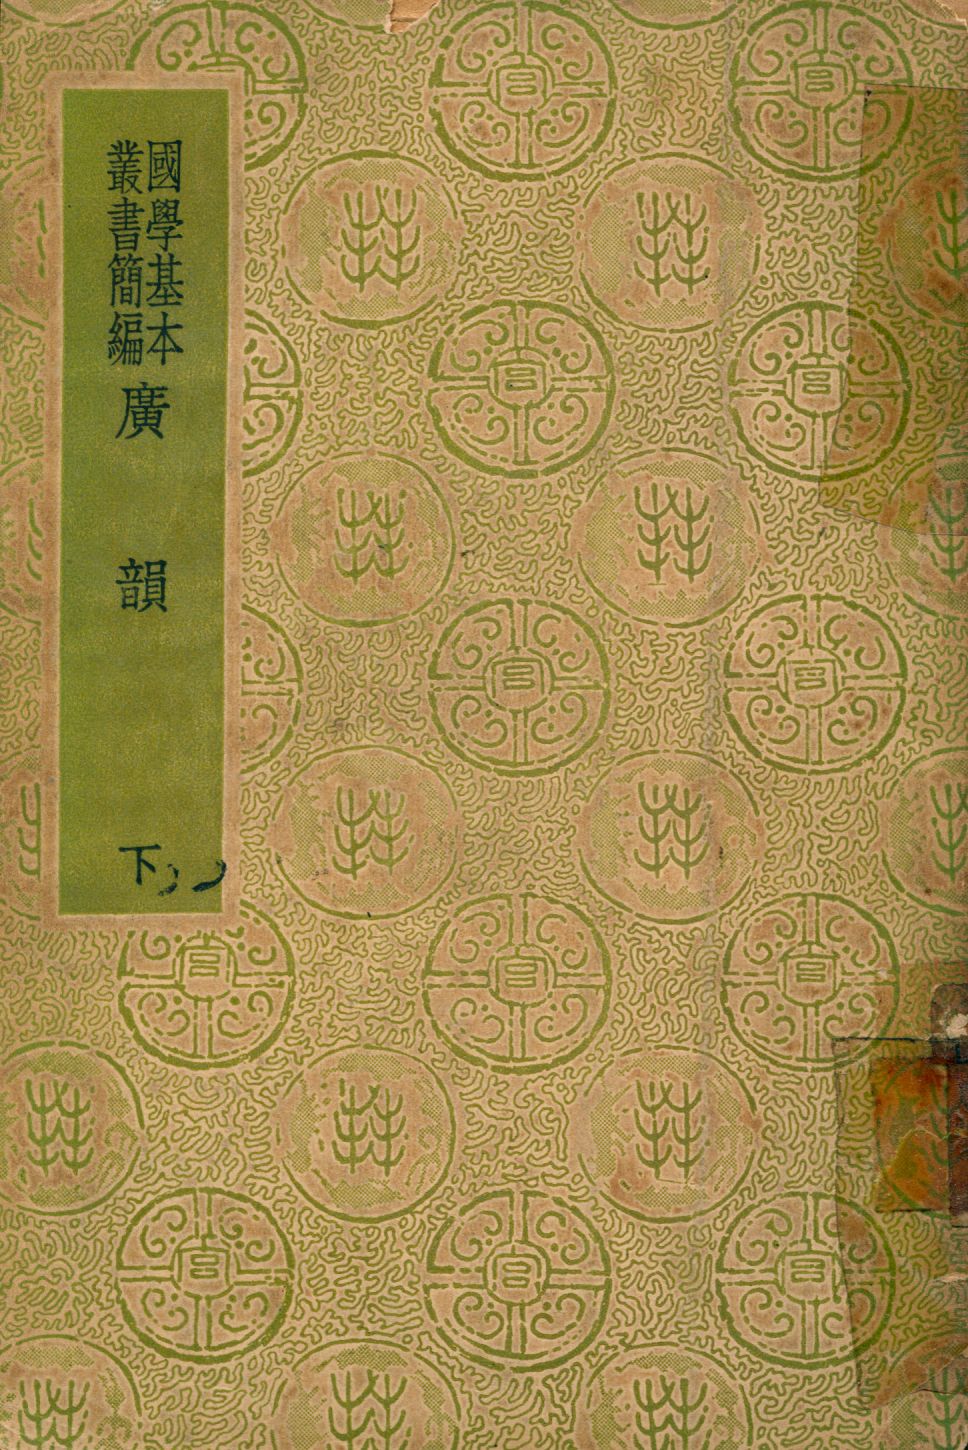 國學基本
叢書簡編
廣韻
下